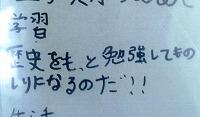 学習
歴史をもっと勉強してもの
しりになるのだ!!